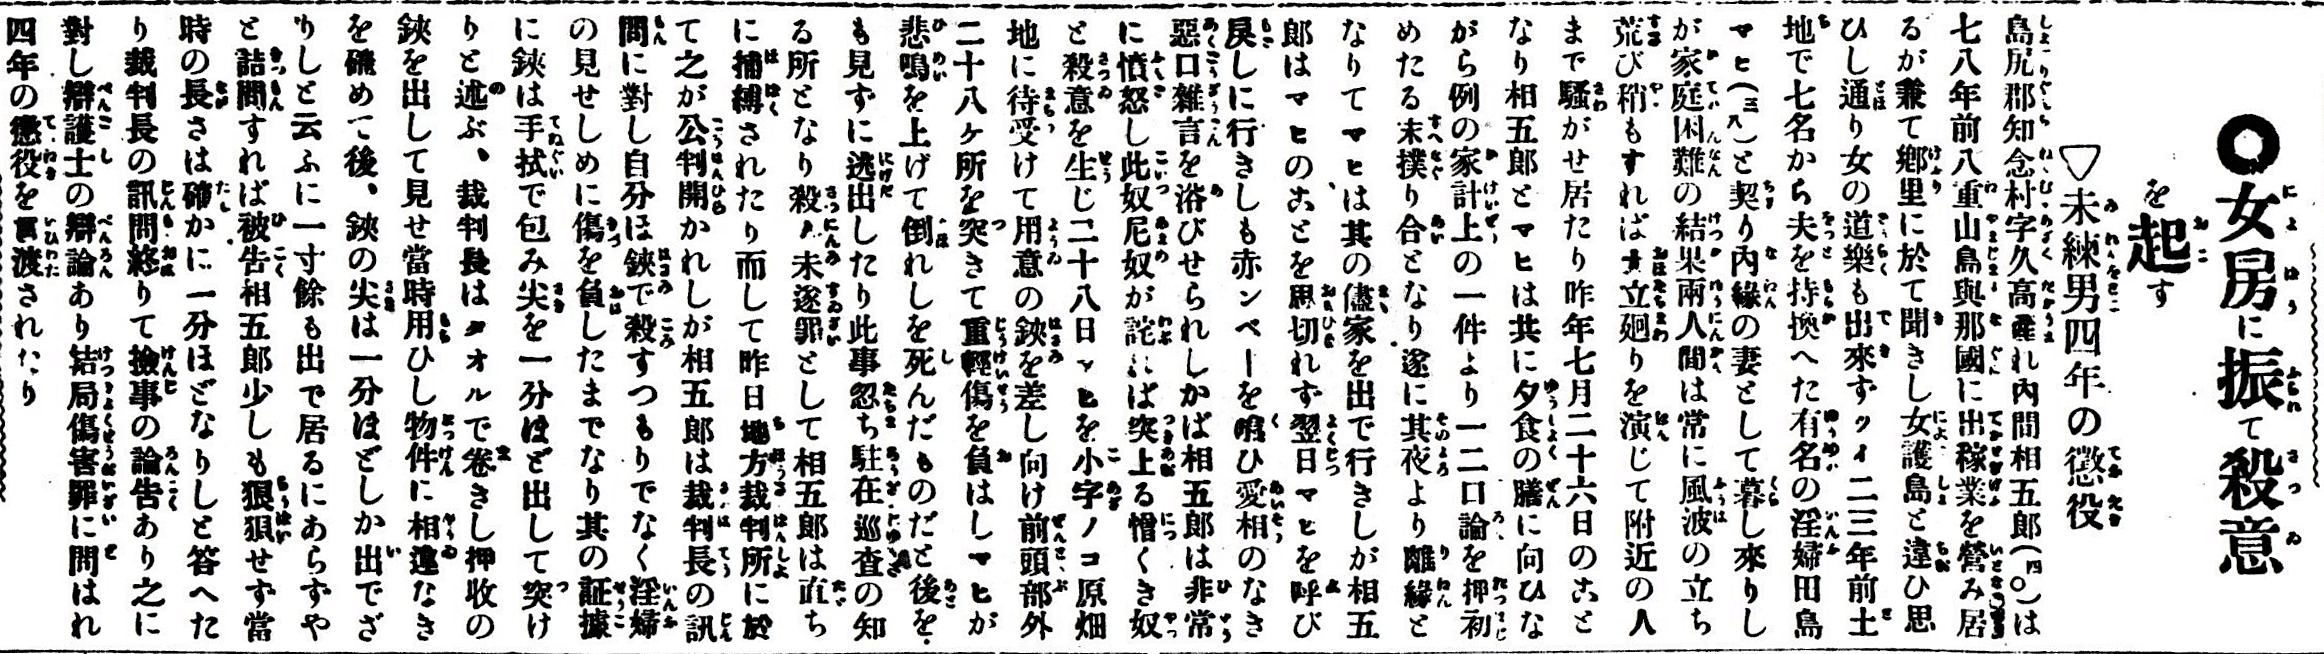 ◯女房に振て殺意
を起す
▽未練男四年の懲役
島尻郡知念村字久高產れ內間相五郎(四〇)は
七八年前八重山島與那國に出稼業を營み居
るが兼て鄕里に於て聞きし女護島と違ひ思
ひし通り女の道樂も出來ずツイ二三年前土
地で七名から夫を持換へた有名の淫婦田島
マヒ(三八)と契り內緣の妻として暮し來りし
が家庭困難の結果兩人間は常に風波の立ち
荒び稍もすれば大立廻りを演じて附近の人
まで騷がせ居たり昨年七月二十六日のこと
なり相五郎とマヒは共に夕食の膳に向ひな
がら例の家計上の一件より一二口論を押初
めたる末撲り合となり遂に其夜より離緣と
なりてマヒは其の儘家を出で行きしが相五
郎はマヒのことを思切れず翌日マヒを呼び
戾しに行きしも赤ンベーを喰ひ愛相のなき
惡口雜言を浴びせられしかば相五郎は非常
に憤怒し此奴尼奴が詫ば突上る憎くき奴
と殺意を生じ二十八日マヒを小字ノコ原畑
地に待受けて用意の鋏を差し向け前頭部外
二十八ヶ所を突きて重輕傷を負はしマヒが
悲鳴を上げて倒れしを死んだものだと後を
も見ずに逃出したり此事忽ち駐在巡査の知
る所となり殺人未遂罪として相五郎は直ち
に捕縛されたり而して昨日地方裁判所に於
て之が公判開かれしが相五郎は裁判長の訊
問に對し自分は鋏で殺すつもりでなく淫婦
の見せしめに傷を負したまでなり其の証據
に鋏は手拭で包み尖を一分ほど出して突け
りと述ぶ、裁判長はタオルで卷きし押收の
鋏を出して見せ當時用ひし物件に相違なき
を確めて後、鋏の尖は一分ほどしか出でざ
りしと云ふに一寸餘も出で居るにあらずや
と詰問すれば被告相五郎少しも狼狽せず當
時の長さは確かに一分ほどなりしと答へた
り裁判長の訊問終りて檢事の論告あり之に
對し辯護士の辯論あり結局傷害罪に問はれ
四年の懲役を言渡されたり